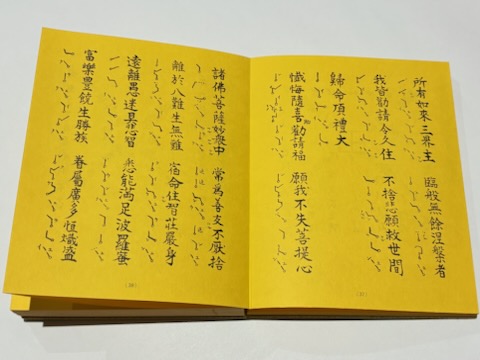 所有如來三界主 臨般無餘涅槃者
我皆勸請令久住 不捨悲願救世間
歸命頂禮大
懺悔隨喜勸請福 願我不失菩提心
諸佛菩薩妙眾中 常為善友不厭捨
離於八難生無難 宿命住智莊嚴身
遠離愚迷具悲智 悉能滿足波羅蜜
富樂豊饒生勝族 眷屬廣多恒熾盛